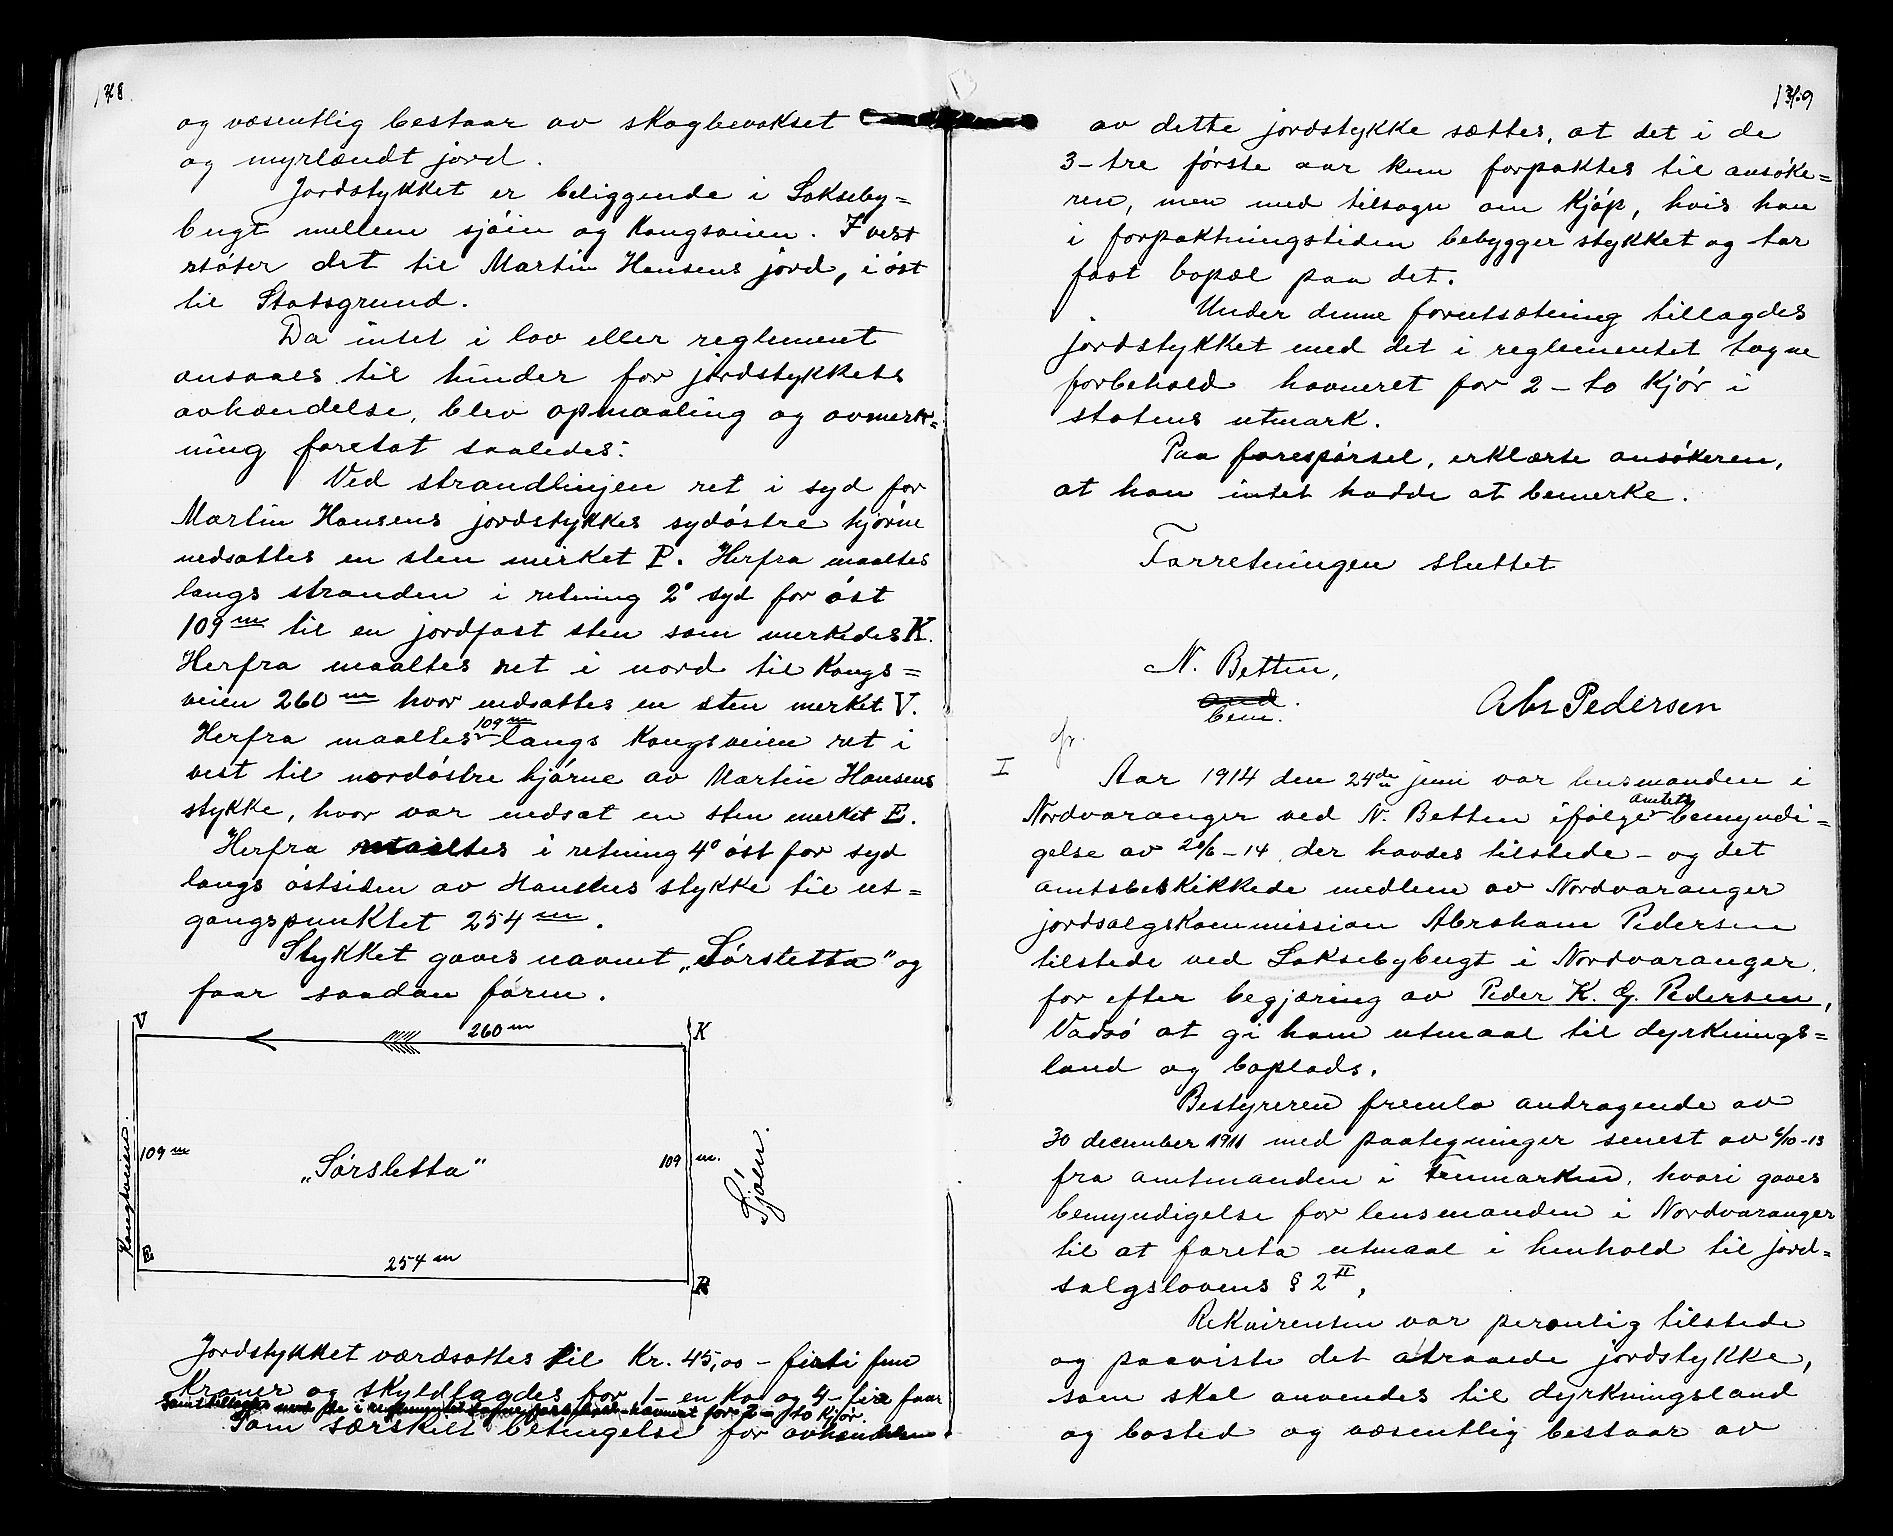 178.
og væsentlig bestaar av skogbevokset
og myrlændt jord.
Jordstykket er beliggende i Lakseby=
bugt mellem sjøin og Kongsveien. I vest
støter det til Martin Hansens jord, i øst
til Statsgrund.
Da intet i lov eller reglement
ansaaes til hinder for jordstykkets
avhændelse, blev opmaaling og avmerk=
ning foretat saaledes:
Ved strandlinjen ret i syd for
Martin Hansens jordstykkes sydøstre hjørne
nedsattes en sten merket P. Herfra maaltes
langs stranden i retning 2° syd for øst
109 m til en jordfast sten som merkedes K.
Herfra maaltes ret i nord til Kongs=
veien 260 m hvor nedsattes en sten merket V.
Herfra maaltes 109 m langs Kongsveien ret i
vest til nordøstre hjørne av Martin Hansens
stykke, hvor var nedsat en sten merket E.
Herfra maaltes i retning 4° øst for syd
langs østsiden av Hansens stykke til ut=
gangspunktet 254 m.
Stykket gaves navnet „Sørsletta" og
faar saadan form.
V
260 m
K
Kongsveien.
109 m
„Sørsletta"
109 m.
Sjøen.
E
254 m
Jordstykket værdsattes til Kr. 45,00 - firti fem
Kroner og skyldlagdes for 1 - en Ko og 4 - fire faar
samt tillagdes med de i reglementet tagne forbehold havneret for 2 - to Kjør.
Som særskilt betingelse for avhændelsen
179
av dette jordstykke sættes, at det i de
3 - tre første aar kun forpaktes til ansøke=
ren, men med tilsagn om Kjøp, hvis han
i forpaktningstiden bebygger stykket og tar
fast bopæl paa det.
Under denne forutsætning tillagdes
jordstykket med det i reglementet tagne
forbehold havneret for 2 - to Kjør i
statens utmark.
Paa forespørsel, erklærte ansøkeren,
at han intet hadde at bemerke.
Forretningen sluttet
N. Betten,
bem.
Abr Pedersen
I
Aar 1914 den 24de juni var lensmanden i
Nordvaranger ved N. Betten ifølge amtets bemyndi=
gelse av 20/6 - 14 der havdes tilstede - og det
amtsbeskikkede medlem av Nordvaranger
jordsalgskommission Abraham Pedersen
tilstede ved Laksebybugt i Nordvaranger
for efter begjæring av Peder K. G. Pedersen,
Vadsø at gi ham utmaal til dyrknings=
land og boplads.
Bestyreren fremla andragende av
30 december 1911 med paategninger senest av 6/10 - 13
fra amtmanden i Finmarken, hvori gaves
bemyndigelse for lensmanden i Nordvaranger
til at foreta utmaal i henhold til jord=
salgslovens § 2 II,
Rekvirenten var personlig tilstede
og paaviste det attraaede jordstykke,
som skal anvendes til dyrkningsland
og bosted og væsentlig bestaar av